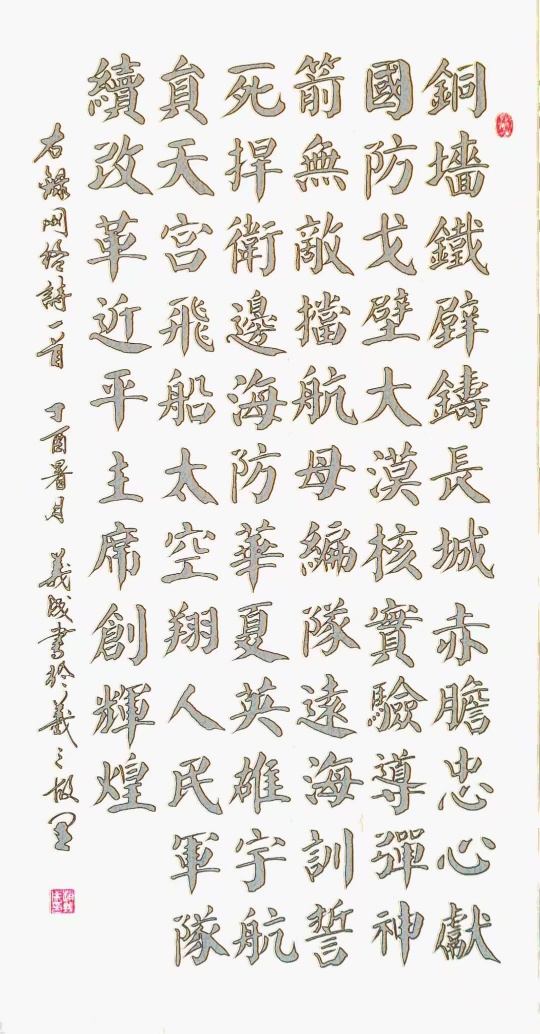 銅墻鐵壁鑄長城赤膽忠心獻
國防戈壁大漠核實驗導彈神
箭無敵擋航母編隊遠海訓誓
死捍衛邊海防華夏英雄宇航
員天宮飛船太空翔人民軍隊
續改革近平主席創輝煌
右錄网络詩一首 丁酉暑月 義成書於羲之故里